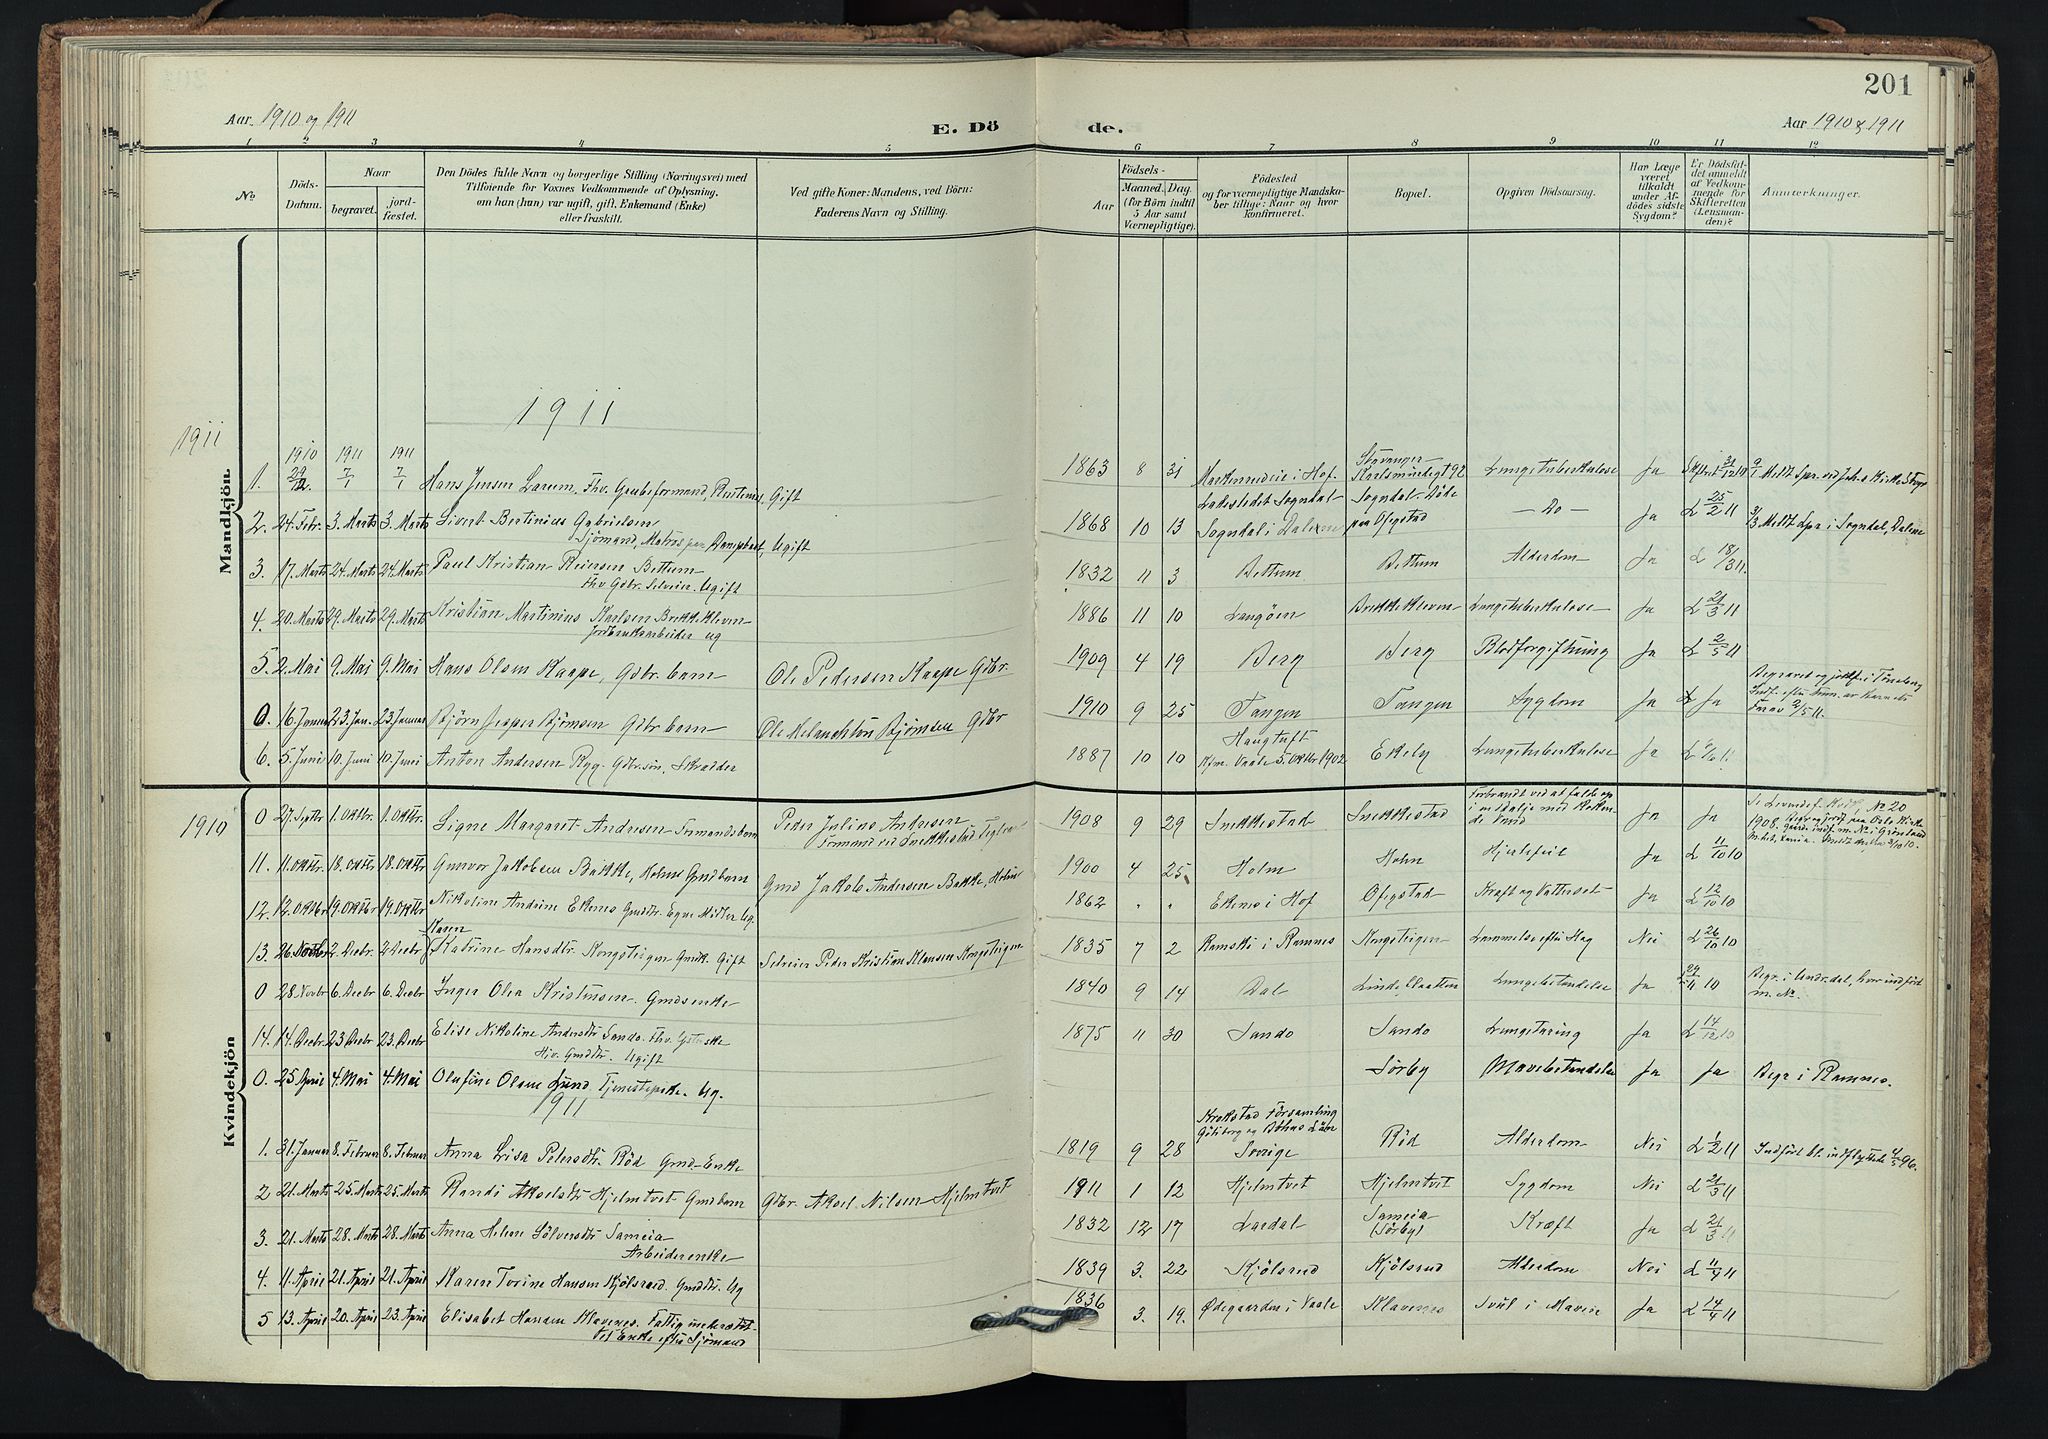 201
Aar 1910 og 1911
E. Dö
de.
Aar 1910 & 1911
1 2 3 4 5 6 7 8 9 10 11 12
No
Döds-Datum.
Naar
begravet.
jord-fæstet.
Den Dödes fulde Navn og borgerlige Stilling (Næringsvei) med
Tilföiende for Voxnes Vedkommende af Oplysning,
om han (hun) var ugift, gift, Enkemand (Enke)
eller fraskilt.
Ved gifte Koner: Mandens, ved Börn:
Faderens Navn og Stilling.
Födsels-
Aar
Maaned. Dag.
(for Börn indtil
5 Aar samt
Værnepligtige).
Födested
og for værnepligtige Mandska-
ber tillige: Naar og hvor
konfirmeret.
Bopæl.
Opgiven Dödsaarsag.
Har Læge
været
tilkaldt
under Af-
dödes sidste
Sygdom?
Er Dödsfal-
det anmeldt
af Vedkom-
mende for
Skifteretten
(Lensman-
den)?
Anmærkninger.
Mandkjön
1911
1911
1910 1911 1911
1. 29/12 7/1 7/1 Hans Jensen Larum, Fhv. Grubeformand, Gift 1863 8 31 Hof Stavanger Lungetuberkulose Ja
2. 24. Febr. 3. Marts 3. Marts Sivert Bertinius Gabrielsen
Sjömand, Matros paa Dampbaat, Ugift 1868 10 13 Ladestedet Sogndal
Sogndal i Dalene Sogndal. Döde
paa Ofigstad — Do — Ja L 25/2 11 3/3 Meldt Spr. i Sogndal, Dalene
3. 17. Marts 24. Marts 24. Marts Paul Kristian Reiersen Bettum
Fhv Gdbr. Selveier. Ugift 1832 11 3 Bettum Bettum Alderdom Ja L 18/3 11.
4. 20. Marts 29. Marts 29. Marts Kristian Martinius Karlsen Brekkekleven
Jordbruksarbeider ug 1886 11 10 Langöen Brekkekleven Lungetuberkulose Ja L 21/3 11
5. 2. Mai 9. Mai 9. Mai Hans Olsen Kaape, Gdbr. barn Ole Pedersen Kaape Gdbr. 1909 4 19 Berg Berg Blodforgiftning Ja L 2/5 11
0. 16. Januar 23. Jan. 23. Januar Björn Jesper Björnsen Gdbr barn Ole Melanchton Björnsen Gdbr 1910 9 25 Tangen Tangen Sygdom Ja L Ja Begravet og jordf. i Tönsberg
6. 5. Juni 10. Juni 10. Juni Anton Andersen Ryg. Gdbr. sön, Skrædder 1887 10 10 Haugtuft
Kfm. Vaale 5. Oktbr 1902 Ekely Lungetuberkulose Ja L 6/6 11
Kvindekjön
1910
0 27. Septbr 1. Oktbr. 1. Oktbr. Signe Margaret Andresen Formandsbarn Peder Julius Andresen
Formand ved Snekkestad Teglverk 1908 9 29 Snekkestad Snekkestad Forbrændt ved at falde op
i en Balje med koken-
de Vand Ja Ja
11. 11. Oktbr. 18. Oktbr. 18. Oktbr. Gunvor Jakobsen Bakke, Holms Gmdbarn Gmd Jakob Andersen Bakke, Holm 1900 4 25 Holm Holm Hjertefeil Ja L 11/10 10
12. 12. Oktbr 19. Oktbr 19. Oktbr Nikoline Andrine Ekenes Gmdtr. Egne Midler Ug. 1862 " " Ekenes i Hof Ofigstad Kræft og Vattersot Ja L 12/10 10
13. 26. Novbr 2. Decbr. 2 Decbr Karen Katrine Hansdtr. Kongsteigen Gmdk. Gift Selveier Peder Kristian Klausen Kongsteigen 1835 7 2 Ramski i Ramnes Kongsteigen Lammelse efter Slag Nei L 26/10 10
0 28. Novbr 6. Decbr 6. Decbr Inger Olea Kristensen. Gmdsenke 1840 9 14 Dal Linde, Sletten Lungebetændelse Ja 29/11 10 Begr. i Undrsdal, her indfört
u. No.
14. 14. Decbr. 23 Decbr. 23. Decbr Elise Nikoline Andersdtr Sando. Fhv.
Gmdtr. Ugift 1875 11 30 Sando Sando Lungetæring Ja L 14/12 10
0. 25. April 4. Mai 4. Mai Olufine Olsen Lund Tjenestepike. Ug. Sörby Mavebetændelse Ja Ja Begr i Ramnes.
1911
1. 31. Januar 8. Februar 8. Februar Anna Lisa Petersdtr. Röd Gmd-Enke 1819 9 28 Krokstad Församling
Göteborg og Bohus Län
Sverige Röd Alderdom Nei L 1/2 11 Indfört bl. indflyttede 4/5 96.
2 21. Marts 25. Marts 25. Marts Randi Akselsdtr Hjelmtvet Gmdbarn Gdbr. Aksel Nilsen Hjelmtvet 1911 1 12 Hjelmtvet Hjelmtvet Sygdom Nei L 21/3 11
3. 21. Marts 28. Marts 28. Marts Anna Helene Sölversdtr Sameia
Arbeiderenke 1832 12 17 Lardal Sameia
(Sörby) Kræft Ja L 21/3 11
4. 11. April 21. April 21. April Karen Torine Hansen Kjölsrud Gmdtr. Ug 1839 3. 22 Kjölsrud Kjölsrud Alderdom Nei L 11/4 11
5 13. April 20. April 23. April Elisabet Hansen Klavenes. Fattigunderstöt-
tet Enke efter Sjömand 1836 3. 19. Ödegaarden i Vaale Klavenes Svul i Maven Ja L 14/4 11